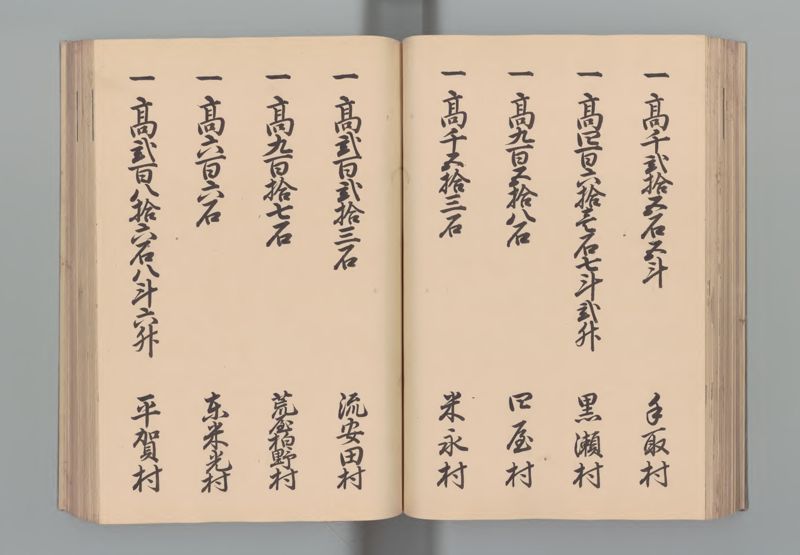 一 高千弐拾五石五斗 手取村
一 高四百六拾壱石七斗弐升 黒瀬村
一 高九百五拾八石 田屋村
一 高千五拾三石 米永村
一 高弐百弐拾三石 流安田村
一 高九百拾七石 荒屋柏野村
一 高六百六石 東米光村
一 高弐百八拾六石八斗六升 平賀村